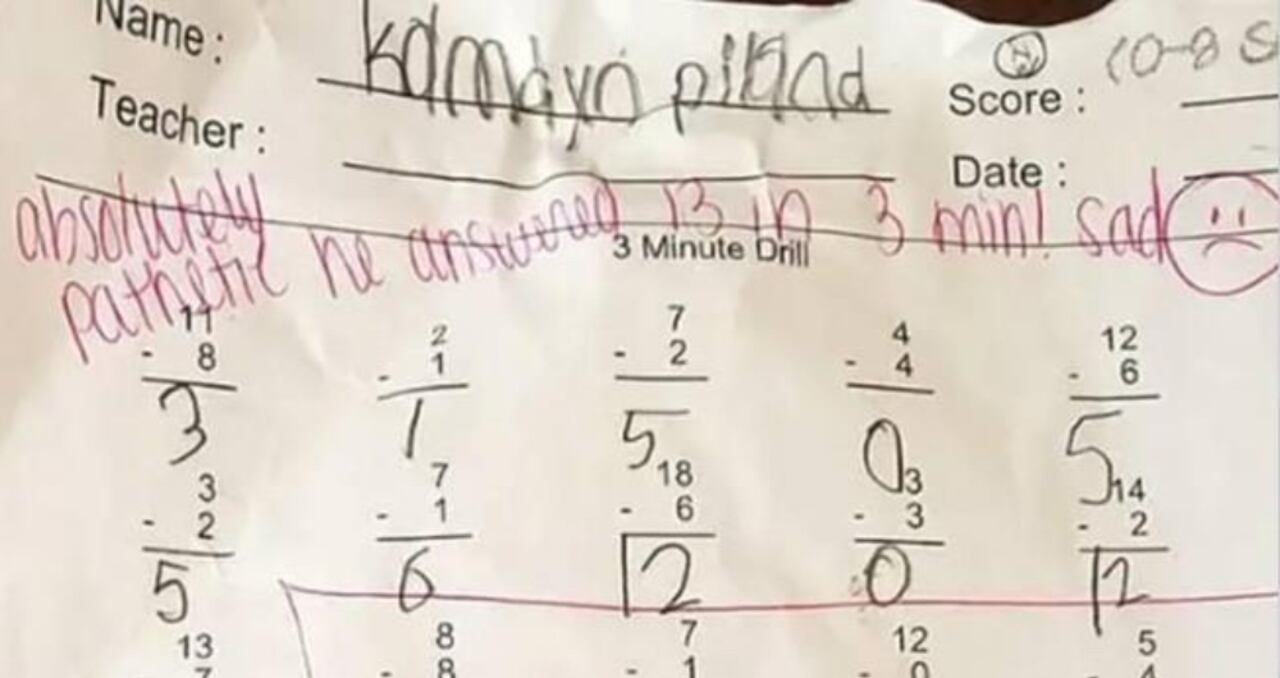 Name: Kamdyn piland
Score:
Teacher:
Date:
absolutely
pathetic he answered 13 in 3 min! sad
3 Minute Drill
11 2 7 4 12
- 8 - 1 - 2 - 4 - 6
3 1 5 0 5
3 7 18 3 14
- 2 - 1 - 6 - 3 - 2
5 6 12 0 12
13 8 7 12 5
7 - 8 - 1 - 0 4